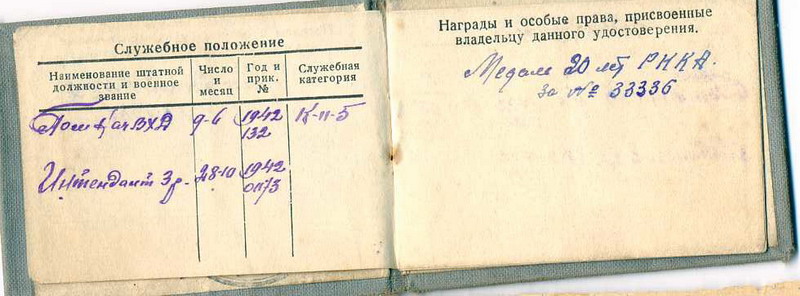 Служебное положение
Наименование штатной
должности и военное
звание
Число
и
месяц
Год и
прик.
№
Служебная
категория
9-6
1942
132
К-п-5
Интендант 3 р.
28-10
1942
0173
Награды и особые права, присвоенные
владельцу данного удостоверения.
Медаль 20 лет РККА.
за № 33336